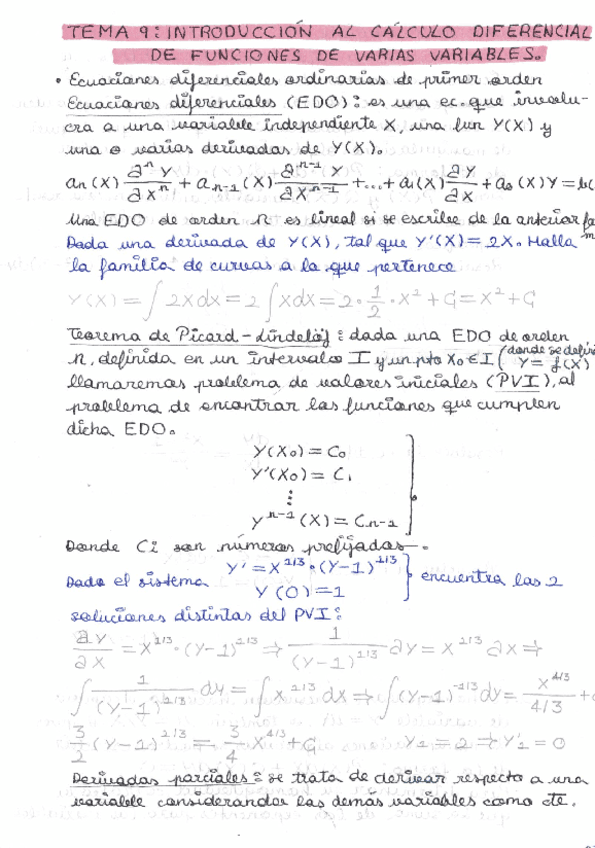 TEMA 9: INTRODUCCIÓN AL CÁLCULO DIFERENCIAL
DE FUNCIONES DE VARIAS VARIABLES.
• Ecuaciones diferenciales ordinarias de primer orden
Ecuaciones diferenciales (EDO): es una ec. que involu-
cra a una variable independiente X, una fun Y(X) y
una o varias derivadas de Y(X).
an(X) ∂ⁿY/∂Xⁿ + an-1(X) ∂ⁿ⁻¹Y/∂Xⁿ⁻¹ + ... + a1(X) ∂Y/∂X + a0(X)Y = b(
Una EDO de orden n es lineal si se escribe de la anterior
Dada una derivada de Y(X), tal que Y'(X) = 2X. Halla
la familia de curvas a la que pertenece
Y(X) = ∫ 2XdX = 2 ∫ XdX = 2 · 1/2 · X² + C = X² + C
Teorema de Picard-Lindelöf: dada una EDO de orden
n, definida en un intervalo I y un pto X0 ∈ I (donde se defin
Y = f(X)
llamaremos problema de valores iniciales (PVI), al
problema de encontrar las funciones que cumplen
dicha EDO.
Y(X0) = C0
Y'(X0) = C1
⋮
Yⁿ⁻¹(X) = Cn-1
Donde Ci son números prefijados.
Y' = X^1/3 · (Y-1)^1/3
Dado el sistema
Y(0) = 1
encuentra las 2
soluciones distintas del PVI:
∂Y/∂X = X^1/3 · (Y-1)^1/3 ⇒ 1/(Y-1)^1/3 ∂Y = X^1/3 ∂X ⇒
∫ 1/(Y-1)^1/3 dY = ∫ X^1/3 dX ⇒ ∫ (Y-1)^-1/3 dY = X^4/3 / 4/3 +
3/2 (Y-1)^2/3 = 3/4 X^4/3 + C Y1 = 1 ⇒ Y1' = 0
Derivadas parciales: se trata de derivar respecto a una
variable considerando las demás variables como cte.